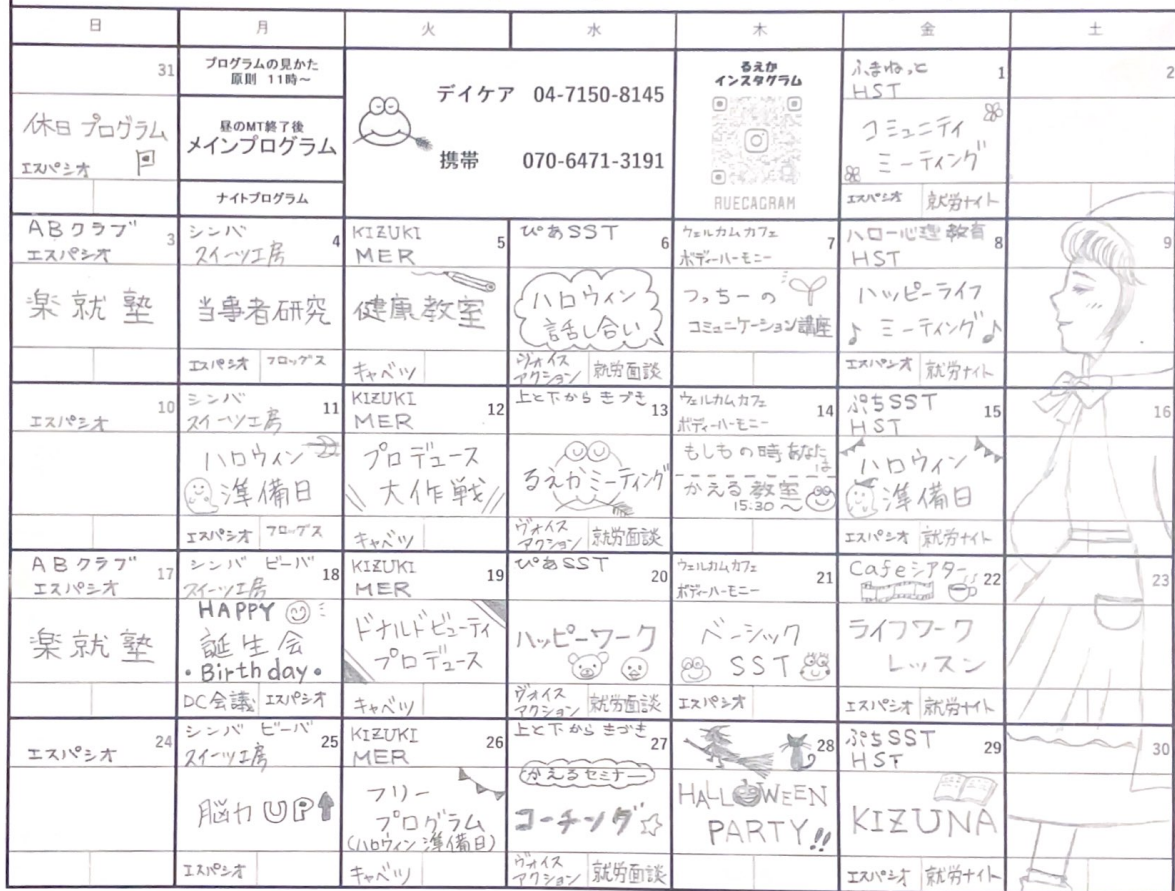 日 月 火 水 木 金 土
31
休日 プログラム
エスパシオ
プログラムの見かた
原則 11時～
昼のMT終了後
メインプログラム
ナイトプログラム
デイケア 04-7150-8145
携帯 070-6471-3191
るえか
インスタグラム
RUECAGRAM
ふまねっと 1
HST
コミュニティ
ミーティング
エスパシオ 就労ナイト
2
ABクラブ 3
エスパシオ
楽就塾
シンバ 4
スイーツ工房
当事者研究
エスパシオ フロッグス
KIZUKI 5
MER
健康教室
キャベツ
ぴあSST 6
ハロウィン
話し合い
ヴォイス
アクション 就労面談
ウェルカムカフェ 7
ボディーハーモニー
つっちーの
コミュニケーション講座
ハロー心理教育 8
HST
ハッピーライフ
♪ ミーティング♪
エスパシオ 就労ナイト
9
10
エスパシオ
シンバ 11
スイーツ工房
ハロウィン
準備日
エスパシオ フロッグス
KIZUKI 12
MER
プロデュース
大作戦
キャベツ
上と下から きづき 13
るえかミーティング
ヴォイス
アクション 就労面談
ウェルカムカフェ 14
ボディーハーモニー
もしもの時あなた
は
かえる教室
15:30～
ぷちSST 15
HST
ハロウィン
準備日
エスパシオ 就労ナイト
16
ABクラブ 17
エスパシオ
楽就塾
シンバ ビーバ 18
スイーツ工房
HAPPY
誕生会
・Birthday・
DC会議 エスパシオ
KIZUKI 19
MER
ドナルドビューティ
プロデュース
キャベツ
ぴあSST 20
ハッピーワーク
ヴォイス
アクション 就労面談
ウェルカムカフェ 21
ボディーハーモニー
ベーシック
SST
エスパシオ
Cafeシアター 22
ライフワーク
レッスン
エスパシオ 就労ナイト
23
24
エスパシオ
シンバ ビーバ 25
スイーツ工房
脳力UP
エスパシオ
KIZUKI 26
MER
フリー
プログラム
(ハロウィン準備日)
キャベツ
上と下から きづき 27
かえるセミナー
コーチング☆
ヴォイス
アクション 就労面談
28
HALLOWEEN
PARTY!!
ぷちSST 29
HST
KIZUNA
エスパシオ 就労ナイト
30